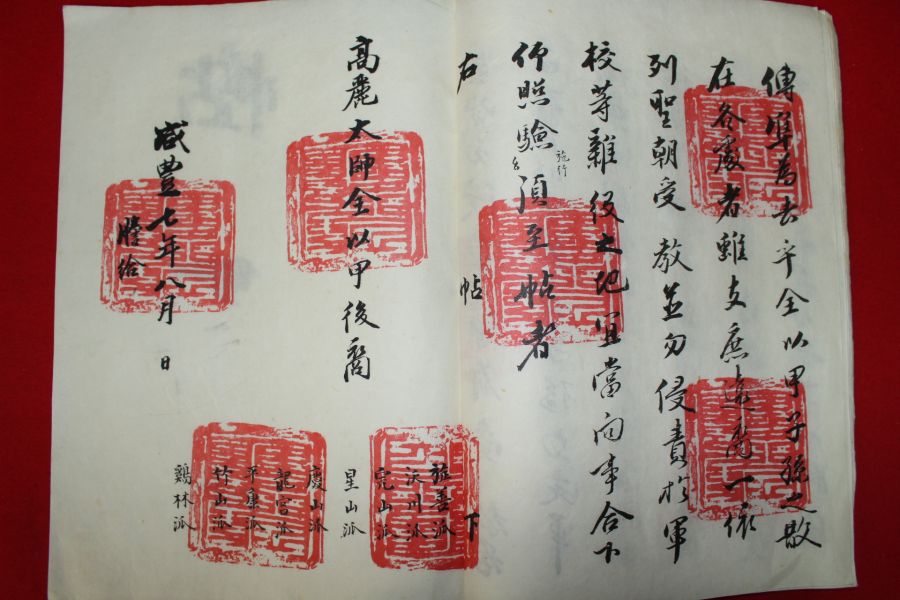 傳準為去乎全以甲子孫之散
在各處者雖支庶遠裔一依
列聖朝受 教並勿侵責於軍
校等雜役之地宜當向事合下
仰照驗施行須至帖者
右 帖 下
高麗太師全以甲後裔
旌善派
沃川派
完山派
星山派
慶山派
龍宮派
平康派
竹山派
鷄林派
咸豊七年八月 日
謄給